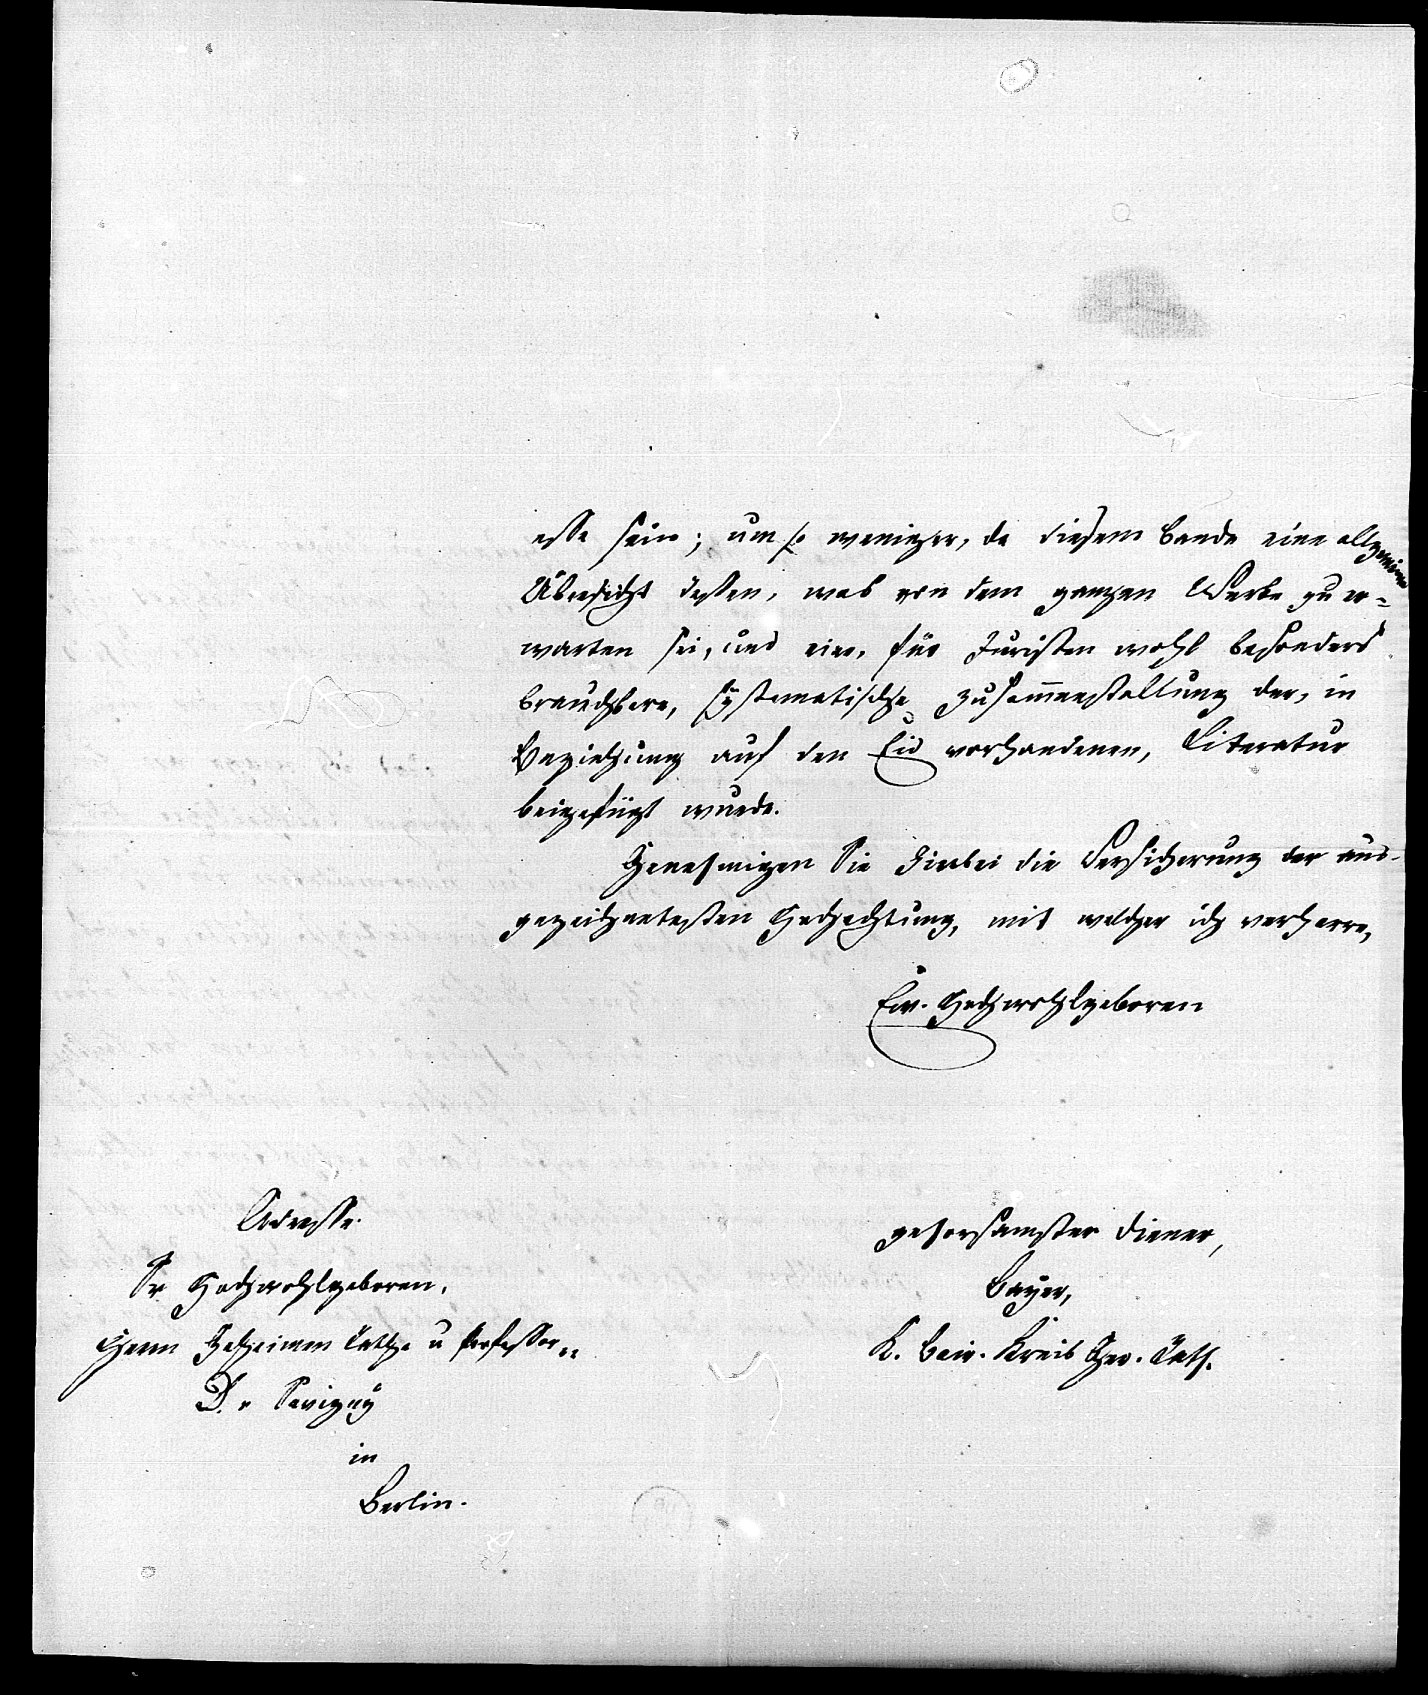 esse sein; um so weniger, da diesem Bande eine allgemeine
Übersicht dessen, was von dem ganzen Werke zu er-
warten sei, und eine, für Juristen wohl besonders
brauchbare, systematische Zusammenstellung der, in
Beziehung auf den Eid vorhandenen, Literatur
beigefügt wurde.
Genehmigen Sie hierbei die Versicherung der aus-
gezeichnetesten Hochachtung, mit welcher ich verharre,
Ew. Hochwohlgeboren
gehorsamster Diener,
Bayer,
K. Bair. Kreis Ger. Rath.
Adresse.
Sr Hochwohlgeboren,
Herrn Geheimen Rathe u Professor
D. v Savigny
in
Berlin.